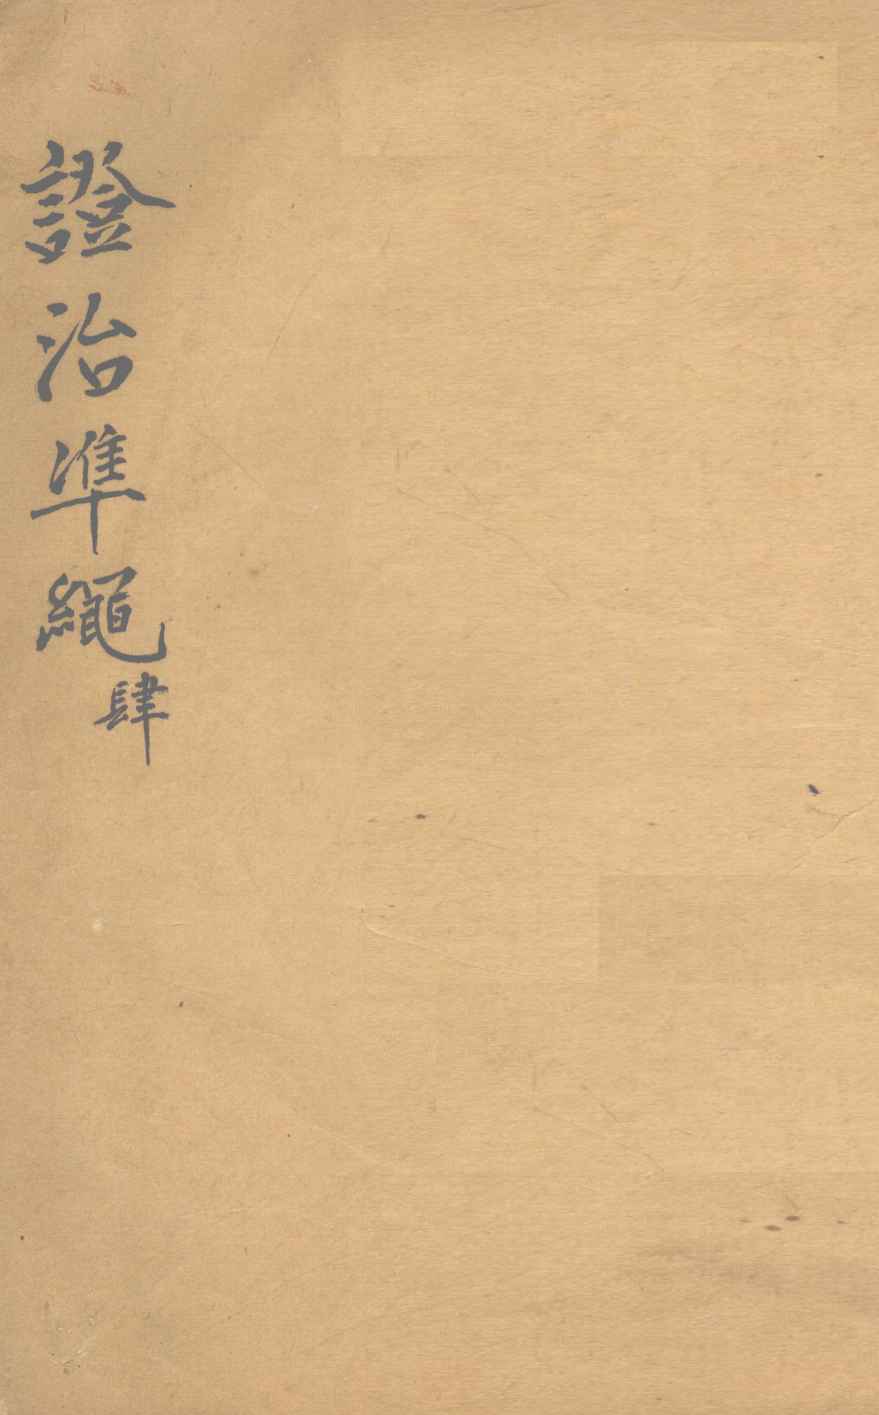 證治準繩
肆